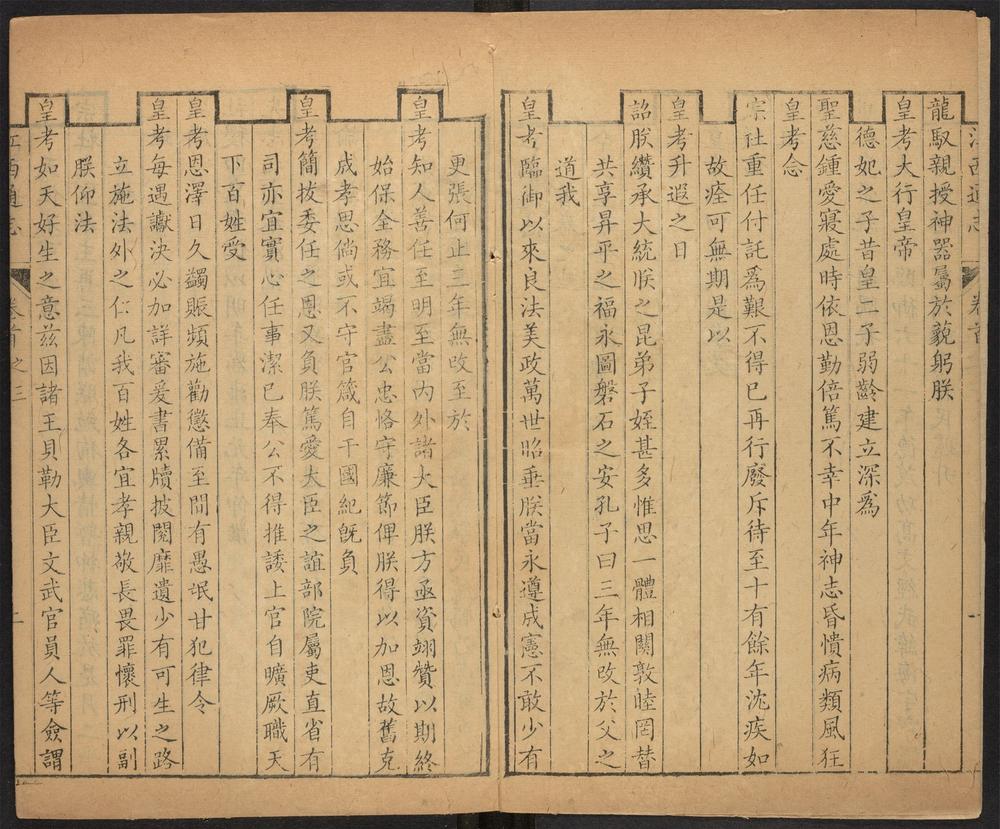 江西通志 卷首 一
龍馭親授神器屬於藐躬朕
皇考大行皇帝
德妃之子昔皇二子弱齡建立深爲
聖慈鍾愛寢處時依恩勤倍篤不幸中年神志昏憒病類風狂
皇考念
宗社重任付託爲艱不得已再行廢斥待至十有餘年沈疾如
故痊可無期是以
皇考升遐之日
詔朕纘承大統朕之昆弟子姪甚多惟思一體相關敦睦罔替
共享昇平之福永圖磐石之安孔子曰三年無改於父之
道我
皇考臨御以來良法美政萬世昭垂朕當永遵成憲不敢少有
更張何止三年無改至於
皇考知人善任至明至當內外諸大臣朕方亟資翊贊以期終
始保全務宜竭盡公忠恪守廉節俾朕得以加恩故舊克
成孝思倘或不守官箴自干國紀旣負
皇考簡拔委任之恩又負朕篤愛大臣之誼部院屬吏直省有
司亦宜實心任事潔己奉公不得推諉上官自曠厥職天
下百姓受
皇考恩澤日久蠲賑頻施勸懲備至間有愚氓甘犯律令
皇考每遇讞決必加詳審爰書累牘披閱靡遺少有可生之路
立施法外之仁凡我百姓各宜孝親敬長畏罪懷刑以副
朕仰法
皇考如天好生之意茲因諸王貝勒大臣文武官員人等僉謂
江西通志 卷首之三 二